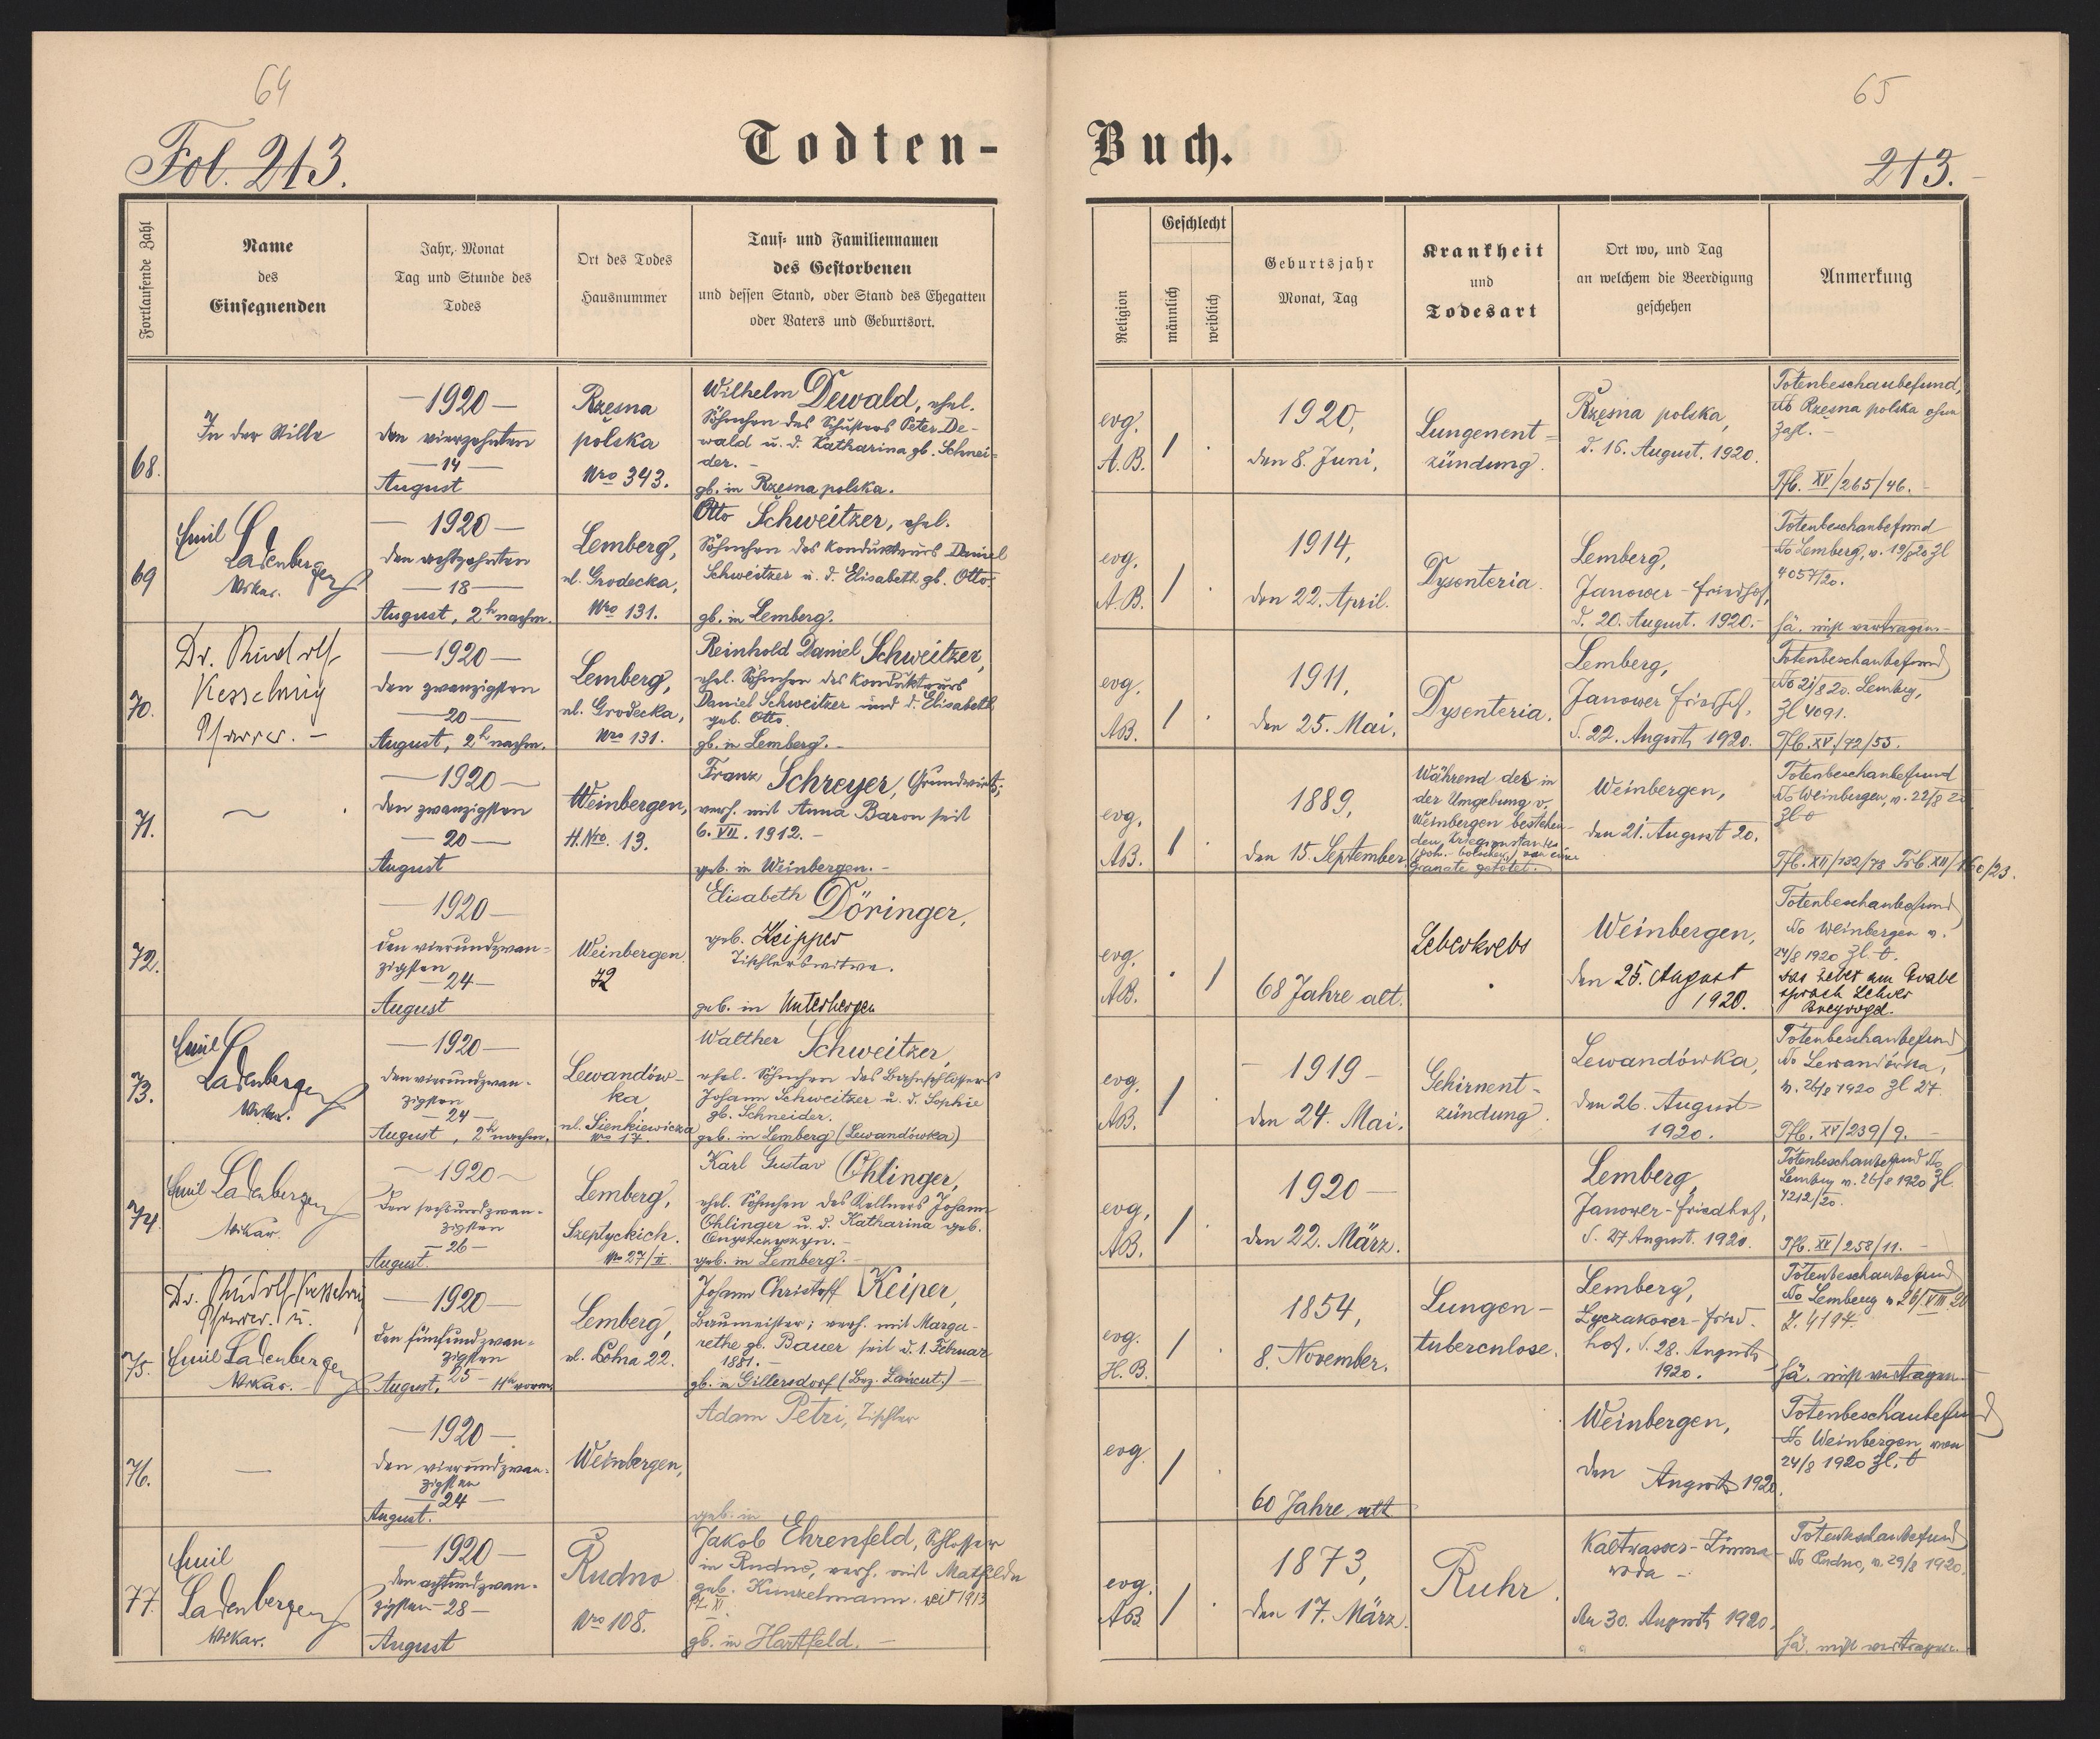 64
Fol. 213.
Todten-
Fortlaufende Zahl
Name
des
Einsegnenden
Jahr, Monat
Tag und Stunde des
Todes
Ort des Todes
Hausnummer
Tauf- und Familiennamen
des Gestorbenen
und dessen Stand, oder Stand des Ehegatten
oder Vaters und Geburtsort.
68.
In der Stille
—1920—
den vierzehnten
—14—
August
Rzęsna
polska
Nro 343.
Wilhelm Dewald, ehel.
Söhnchen des Schusters Peter De-
wald u. d. Katharina gb. Schnei-
der. –
gb. in Rzęsna polska.
69
Emil
Ladenberger
Vikar.
—1920—
den achtzehnten
—18—
August, 2h nachm.
Lemberg,
ul. Grodecka,
Nro 131.
Otto Schweitzer, ehel.
Söhnchen des Kondukteurs Daniel
Schweitzer u. d. Elisabeth gb. Otto.
gb. in Lemberg.
70.
Dr. Rudolf
Kesselring
Pfarrer. –
—1920—
den zwanzigsten
—20—
August, 2h nachm.
Lemberg,
ul. Grodecka,
Nro 131.
Reinhold Daniel Schweitzer,
ehel. Söhnchen des Kondukteurs
Daniel Schweitzer und d. Elisabeth
geb. Otto.
gb. in Lemberg. –
71.
—1920—
den zwanzigsten
—20—
August
Weinbergen,
H.Nro. 13.
Franz Schreyer, Grundwirts;
verh. mit Anna Baron seit
6. VII. 1912. –
geb. in Weinbergen. –
72.
—1920—
den vierundzwan-
zigsten
—24—
August
Weinbergen.
72
Elisabeth Döringer,
geb. Keipper
Tischlerswitwe.
geb. in Unterbergen
73.
Emil
Ladenberger
Vikar.
—1920—
den vierundzwan-
zigsten
—24—
August, 2h nachm.
Lewandów-
ka,
ul. Sienkiewicza
Nro 17.
Walther Schweitzer,
ehel. Söhnchen des Bahnschlossers
Johann Schweitzer u. d. Sophie
gb. Schneider.
geb. in Lemberg (Lewandówka)
74.
Emil Ladenberger
Vikar.
—1920—
den sechsundzwan-
zigsten
—26—
August.
Lemberg,
Szeptyckich.
Nro 27/II
Karl Gustav Ohlinger,
ehel. Söhnchen des Kellners Johann
Ohlinger u. d. Katharina geb.
geb. in Lemberg. –
75.
Dr. Rudolf Kesselring
Pfarrer. u.
Emil Ladenberger
Vikar. –
—1920—
den fünfundzwan-
zigsten
August, 25 – 11h vorm.
Lemberg,
ul. Lohna 22.
Johann Christoff Keiper,
Baumeister; verh. mit Marga-
rethe gb. Bauer seit d. 1. Februar
1881. –
gb. in Gillersdorf (Bez. Lancut.) –
76.
—
—1920—
den vierundzwan-
zigsten
—24—
August.
Weinbergen,
Adam Petri, Tischler
geb. in
77.
Emil
Ladenberger
Vikar.
—1920—
den achtundzwan-
zigsten – 28 –
August
Rudno
Nro 108.
Jakob Ehrenfeld, Schlosser
in Rudno, verh. mit Mathilde
geb. Kunzelmann. seit 1913
gb. in Hartfeld. –
65
Buch.
213.
Religion
Geschlecht
männlich
weiblich
Geburtsjahr
Monat, Tag
Krankheit
und
Todesart
Ort wo, und Tag
an welchem die Beerdigung
geschehen
Anmerkung
evg.
A.B.
1920,
den 8. Juni,
Lungenent-
zündung.
Rzęsna polska,
d. 16. August. 1920.
Totenbeschaubefund,
dto Rzęsna polska ohne
Zahl. –
Tfb. XV/265/46. –
evg.
A.B.
1914,
den 22. April.
Dysenteria.
Lemberg,
Janower-Friedhof,
d. 20. August. 1920. –
Totenbeschaubefund
dto Lemberg, v. 19/8 20 Zl
4057/20.
Hä. nicht vortragen. –
evg.
AB.
1911,
den 25. Mai,
Dysenteria.
Lemberg,
Janower Friedhof,
d. 22. August 1920.
Totenbeschaubefund
dto 21/8 20. Lemberg,
Zl 4091.
Tfb. XV./92/55.
evg.
AB.
1889,
den 15. September
Während des in
der Umgebung v.
Weinbergen bestehen-
den Kriegszustandes
(poln.-bolschew.) von eine
Granate getötet. –
Weinbergen,
den 21. August 20.
Totenbeschaubefund
dto Weinbergen, v. 22/8 20
Tfb. XII/132/78 Trb. XII/160/23.
evg.
AB.
68 Jahre alt.
Leberkrebs
Weinbergen,
den 25. August
1920.
Totenbeschaubefund
dto Weinbergen v.
24/8 1920 Zl. 0.
das Gebet am Grabe
sprach Lehrer
evg.
AB.
– 1919 –
den 24. Mai.
Gehirnent-
zündung.
Lewandówka,
den 26. August
1920.
Totenbeschaubefund
dto Lewandówka,
v. 26/8 1920 Zl 27.
Tfb. XV/239/9. –
evg,
AB.
1920—
den 22. März.
Lemberg
Janower-Friedhof,
d. 27 August. 1920.
Totenbeschaubefund dto
Lemberg v. 26/8 1920 Zl.
4212/20.
Tfb. XV/258/11. –
evg.
H.B.
1854,
8. November.
Lungen-
tuberculose.
Lemberg,
Lyczakower-Fried-
hof, d. 28. August
1920.
Totenbeschaubefund
dto Lemberg v 26/VIII 20
Z. 4194.
Hä. nicht vortragen. –
evg.
60 Jahre alt
Weinbergen,
den August 1920.
Totenbeschaubefund
dto Weinbergen von
24/8 1920 Zl. 0
evg.
AB
1873,
den 17. März.
Ruhr.
Kaltwasser-Zimna-
woda –
den 30. August 1920.
Totenbeschaubefund
dto Rudno, v. 29/8 1920.
Hä. nicht vortragen.